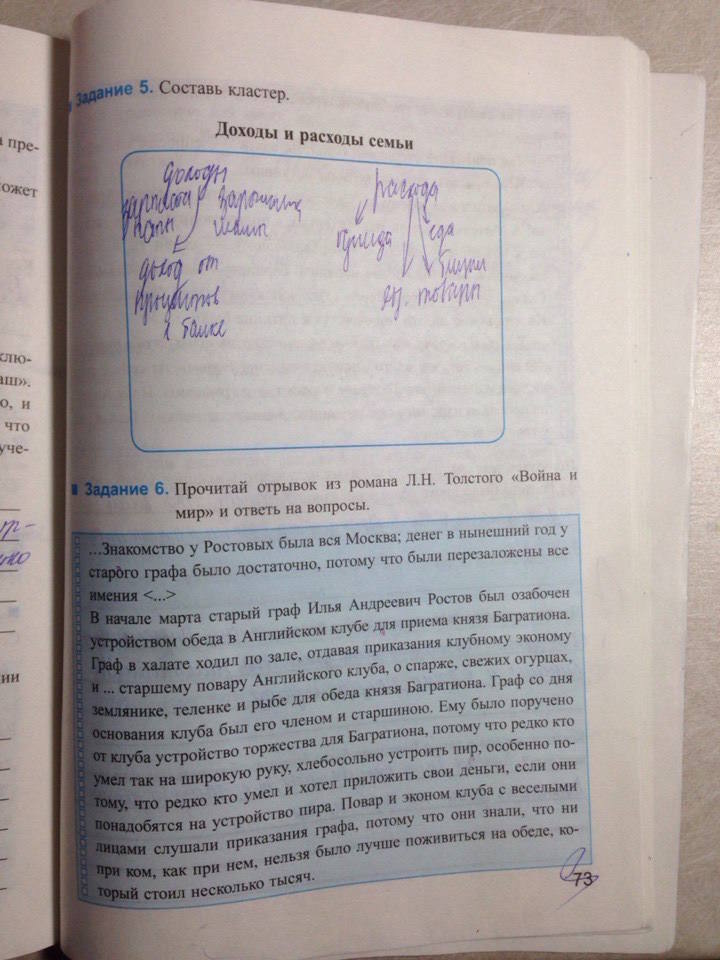 Задание 5. Составь кластер.
Доходы и расходы семьи
доходы
зарплата папы
зарплата мамы
доход от
процентов
в банке
расхода
одежда
еда
товары
Задание 6. Прочитай отрывок из романа Л.Н. Толстого «Война и
мир» и ответь на вопросы.
...Знакомство у Ростовых была вся Москва; денег в нынешний год у
старого графа было достаточно, потому что были перезаложены все
имения <...>
В начале марта старый граф Илья Андреевич Ростов был озабочен
устройством обеда в Английском клубе для приема князя Багратиона.
Граф в халате ходил по зале, отдавая приказания клубному эконому
и ... старшему повару Английского клуба, о спарже, свежих огурцах,
землянике, теленке и рыбе для обеда князя Багратиона. Граф со дня
основания клуба был его членом и старшиною. Ему было поручено
от клуба устройство торжества для Багратиона, потому что редко кто
умел так на широкую руку, хлебосольно устроить пир, особенно по-
тому, что редко кто умел и хотел приложить свои деньги, если они
понадобятся на устройство пира. Повар и эконом клуба с веселыми
лицами слушали приказания графа, потому что они знали, что ни
при ком, как при нем, нельзя было лучше поживиться на обеде, ко-
торый стоил несколько тысяч.
73
а пре-
ожет
клю-
аш».
о, и
что
уче-
ии